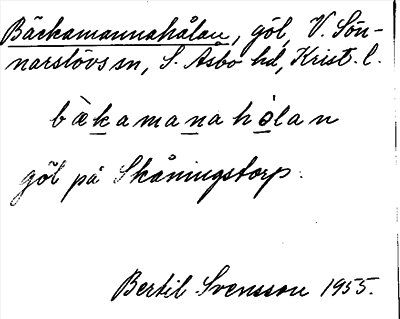 Bäckamannahålan, göl, V. Sön-
narslövs sn, S. Åsbo hd, Krist. l.
bàkamanahòlan
göl på Skåningstorp.
Bertil Svensson 1955.